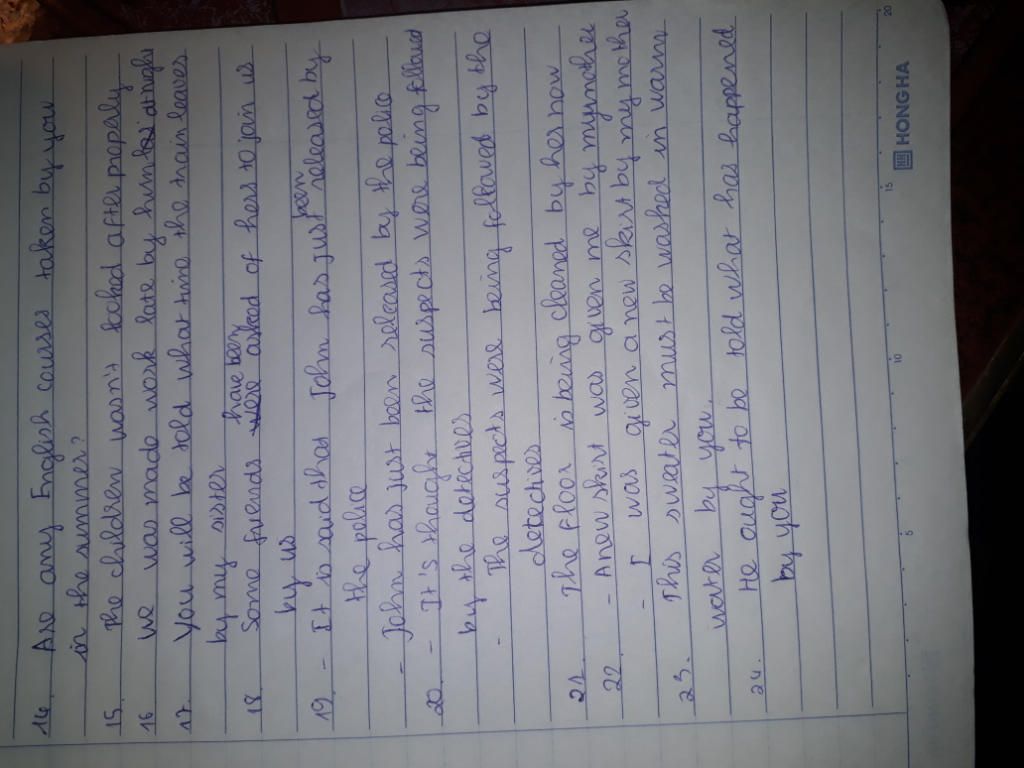 14. Are any English courses taken by you
in the summer?
15. The children wasn't looked after properly
16 We was made work late by him at night
17. You will be told what time the train leaves
by my sister
have been
18. Some friends asked of hers to join us
by us
been
19. - It is said that John has just released by
the police
- John has just been released by the police
20. - It's thought the suspects were being followed
by the detectives
- The suspects were being followed by the
detectives
21. The floor is being cleaned by her now
22. - A new skirt was given me by my mother
- I was given a new skirt by my mother
23. This sweater must be washed in warm
water by you.
24. He ought to be told what has happened
by you
HONGHA
5
10
15
20